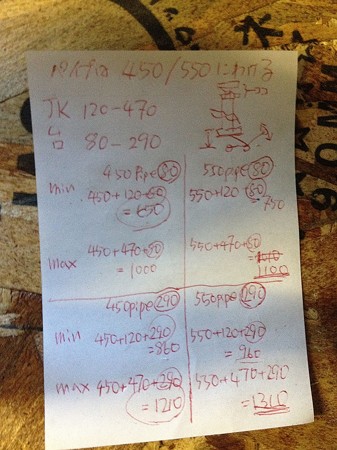 パイプは 450/550にわける
JK 120-470
台 80-290
450 Pipe 80
min
450+120+80
=650
max
450+470+80
=1000
550 pipe 80
550+120+80
750
550+470+80
=1010
1100
450 pipe 290
min
450+120+290
=860
max
450+470+290
=1210
550 pipe 290
550+120+290
=960
550+470+290
=1310